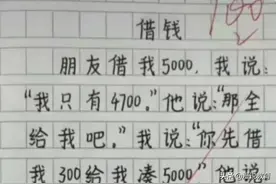 100
借钱
朋友借我5000，我说：
“我只有4700。”他说：“那全
给我吧。”我说：“你先借
我300给我凑5000”